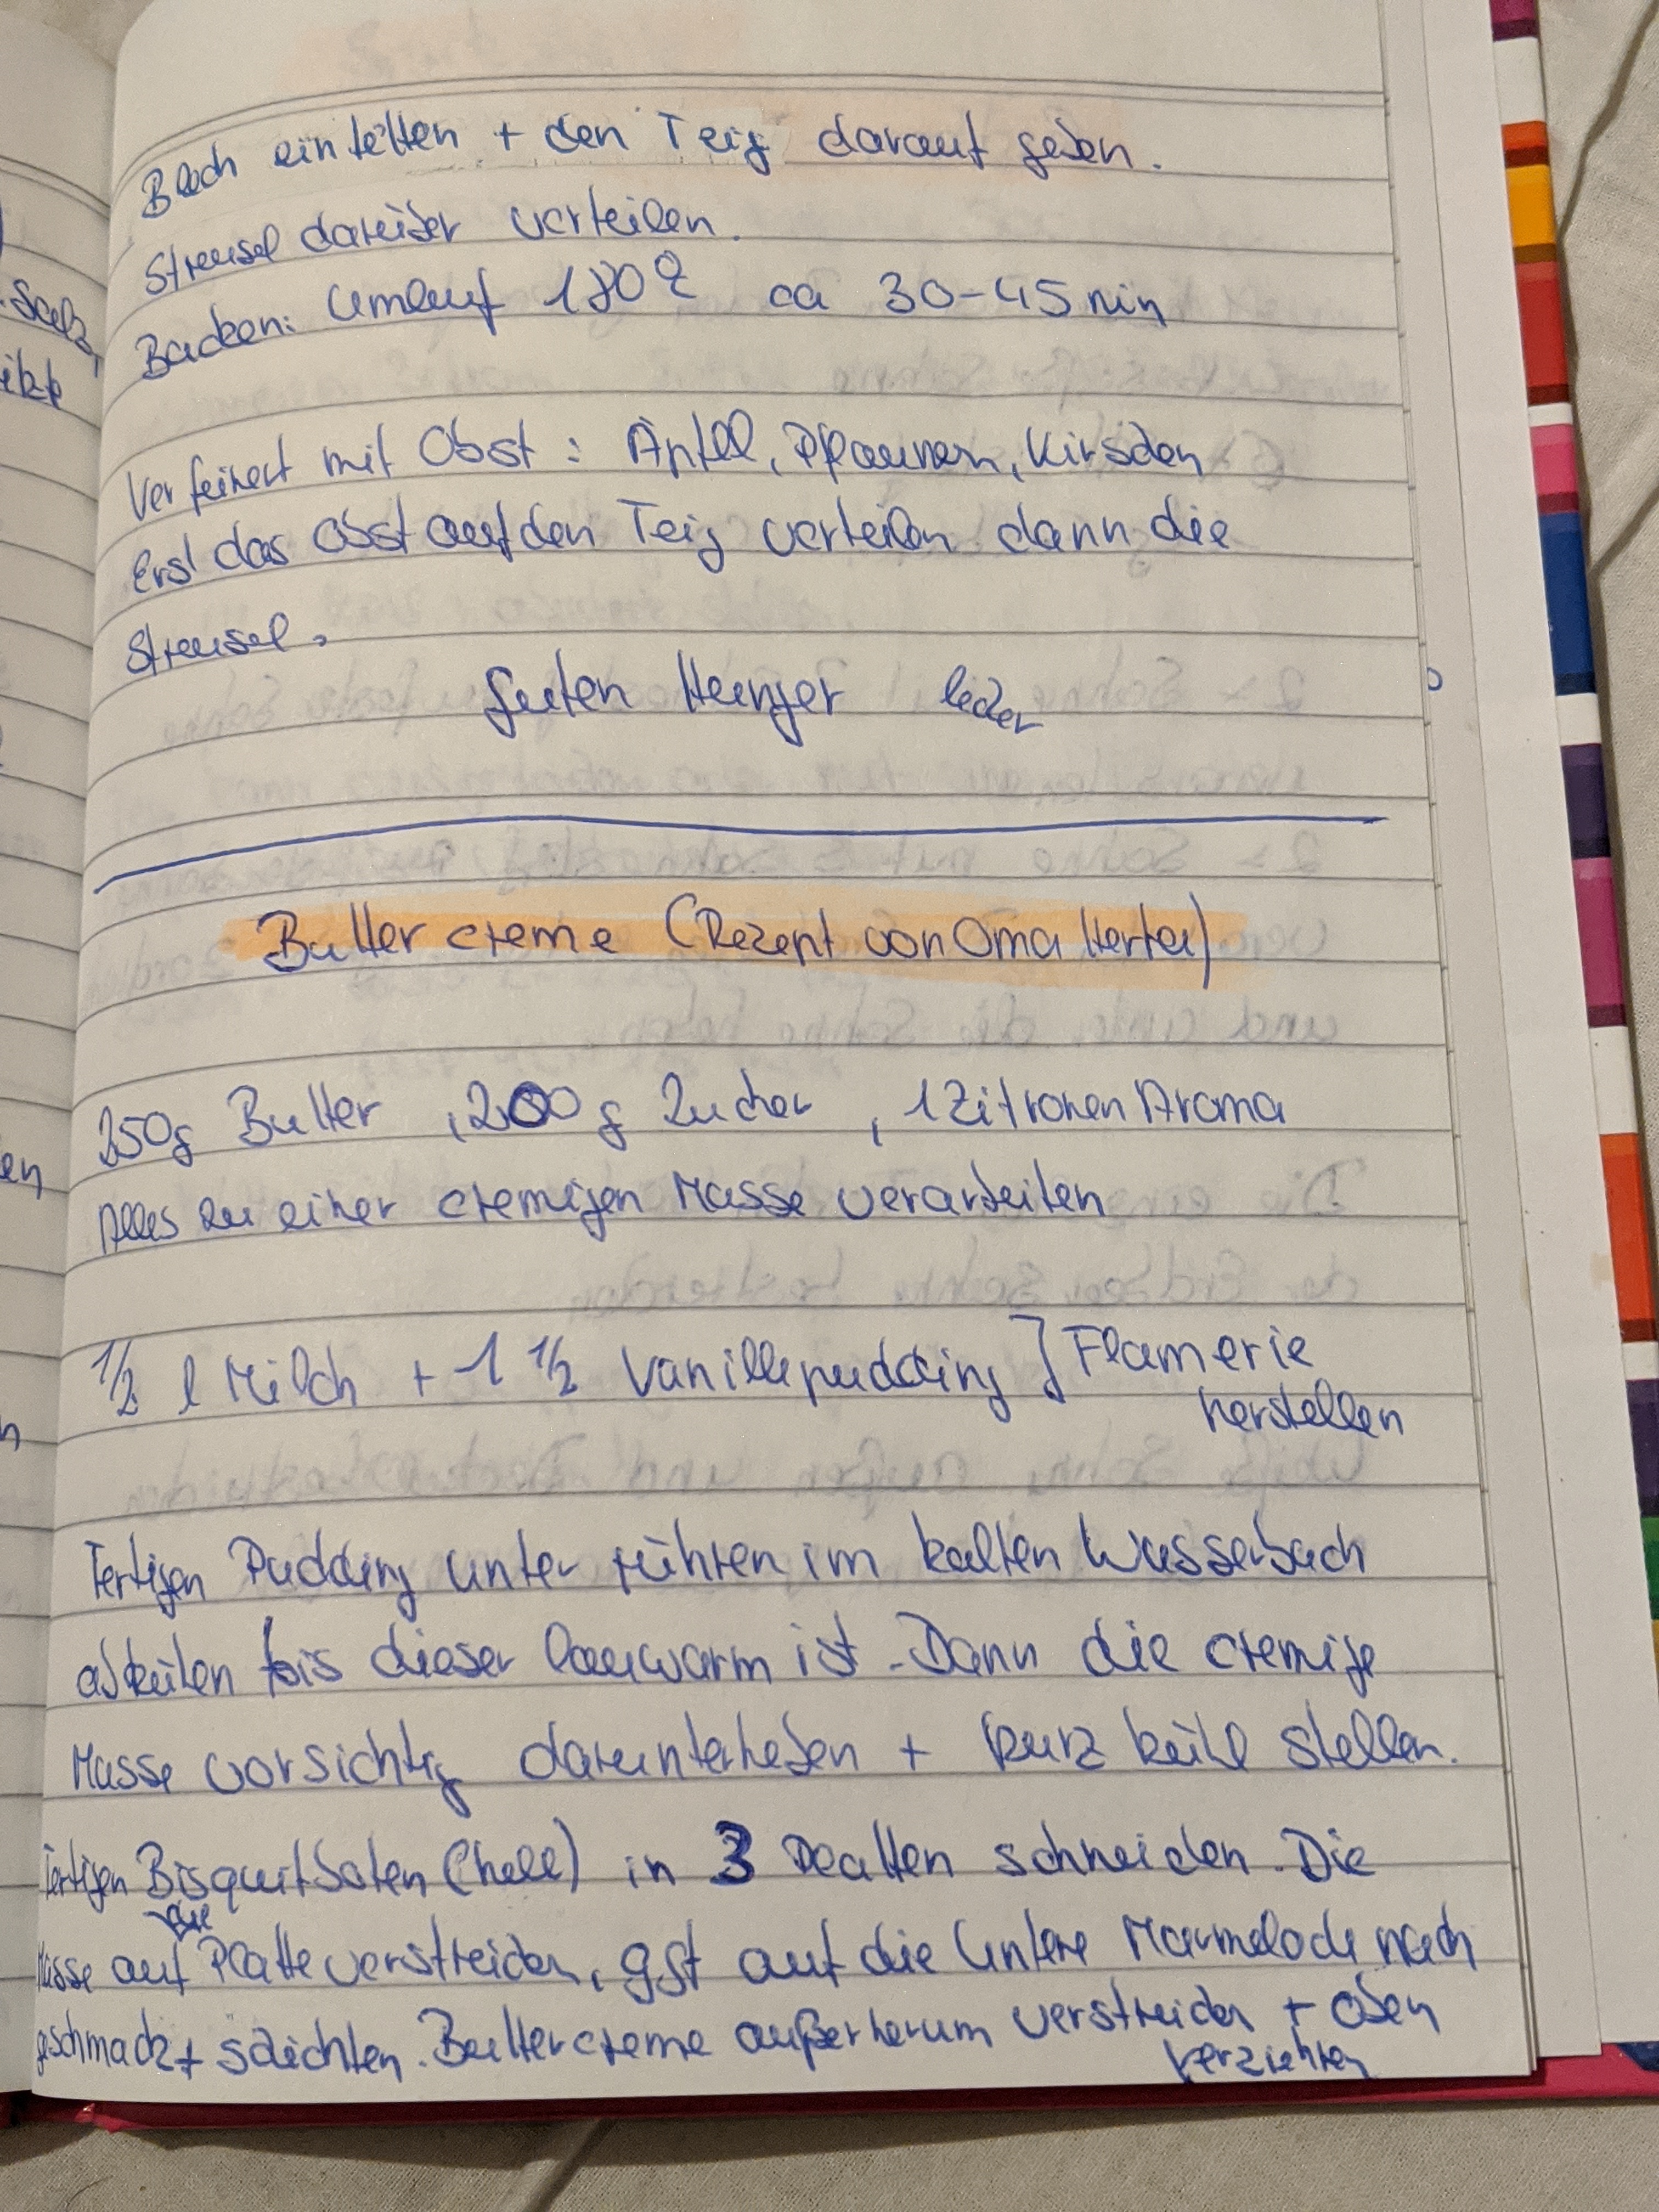 Blech einfetten + den Teig darauf geben.
Streusel darüber verteilen.
Backen: Umluft 180° ca 30-45 min
Verfeinert mit Obst : Äpfel, Pflaumen, Kirschen
Erst das Obst auf den Teig verteilen dann die
Streusel.
Guten Hunger lecker
Buttercreme (Rezept von Oma Herta)
250g Butter , 200g Zucker , 1 Zitronen Aroma
Alles zu einer cremigen Masse verarbeiten
1/2 l Milch + 1 1/2 Vanillepudding ] Flamerie
herstellen
Fertigen Pudding unter rühren im kalten Wasserbach
abkülen bis dieser lauwarm ist. Dann die cremige
Masse vorsichtig darunterheben + kurz kühl stellen.
fertigen Bisquitboten (hell) in 3 Platten schneiden. Die
Masse auf die Platte verstreichen, ggf auf die Untere Marmelade nach
geschmack + schichten. Buttercreme außerherum verstreichen + oben
verziehren